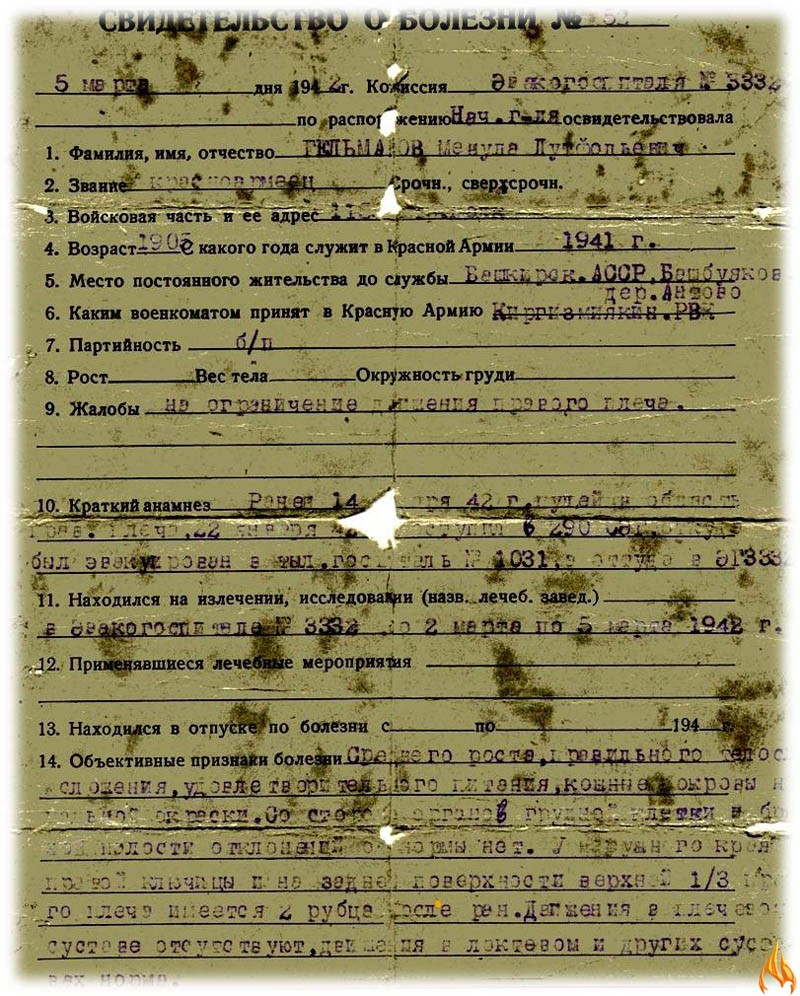 СВИДЕТЕЛЬСТВО О БОЛЕЗНИ № 52
5 марта дня 1942г. Комиссия Эвакогоспиталя № 3332
по распоряжению Нач. г-ля освидетельствовала
1. Фамилия, имя, отчество ГЕЛЬМАНОВ
2. Звание красноармеец Срочн., сверхсрочн.
3. Войсковая часть и ее адрес
4. Возраст 1905 с какого года служит в Красной Армии 1941 г.
5. Место постоянного жительства до службы Башкирск.АССР,
дер.Антово
6. Каким военкоматом принят в Красную Армию Киргизмиякин.РВК
7. Партийность б/п
8. Рост Вес тела Окружность груди
9. Жалобы на ограничение движения правого плеча.
10. Краткий анамнез Ранен 14 42 г. в область
прав. плеча, 22 января 42 поступил в 290 откуда
был эвакуирован в тыл.госпиталь № 1031, а оттуда в ЭГ3332
11. Находился на излечении, исследовании (назв. лечеб. завед.)
в Эвакогоспитале № 3332 со 2 марта по 5 марта 1942 г.
12. Применявшиеся лечебные мероприятия
13. Находился в отпуске по болезни с по 194 г.
14. Объективные признаки болезни Среднего роста, правильного телос
сложения, удовлетворительного питания, кожные покровы н
мальной окраски. Со стороны органов грудной клетки и бр
ной полости отклонений от нормы нет. У наружного края
правой ключицы и на задней поверхности верхней 1/3 пра
го плеча имеется 2 рубца после ран. Движения в плечево
суставе отсутствуют, движения в локтевом и других суст
вах норма.